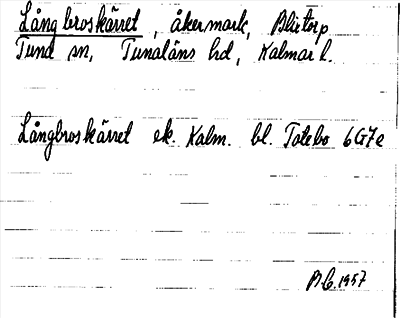 Långbroskärret, åkermark, Blixtorp
Tuna sn, Tunaläns hd, Kalmar l.
Långbroskärret ek. Kalm. bl. Totebo 6G7e
1957